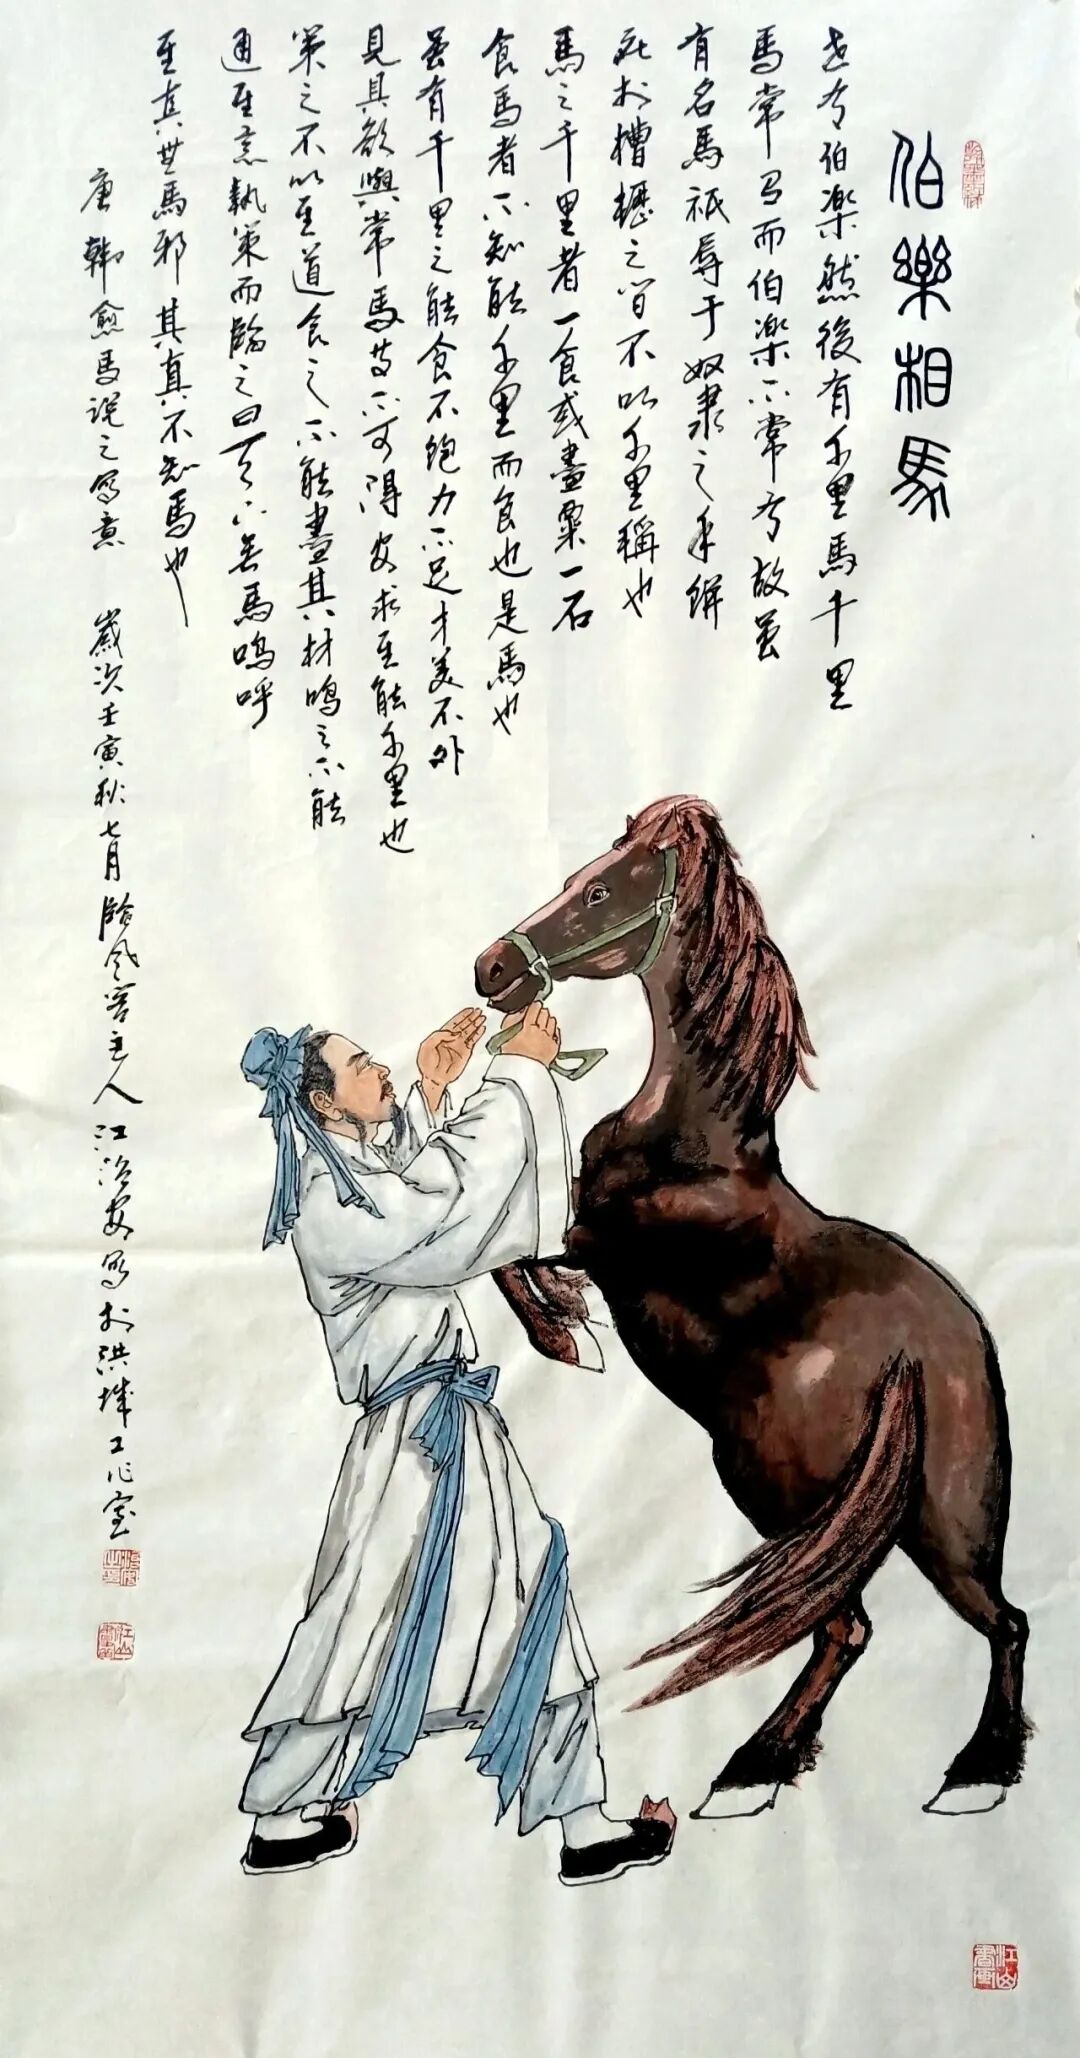 伯樂相馬
世有伯楽然後有千里馬千里
馬常有而伯楽不常有故虽
有名馬祇辱于奴隶之手骈
死於槽櫪之间不以千里稱也
馬之千里者一食或盡粟一石
食馬者不知能千里而食也是馬也
虽有千里之能食不饱力不足才美不外
見且欲與常馬等不可得安求其能千里也
策之不以其道食之不能盡其材鳴之不能
通其意執策而臨之曰天下无馬鳴呼
其真無馬邪其真不知馬也
唐韓愈馬说之写意 歲次壬寅秋七月 主人江 写於洪城工作室
江山書画